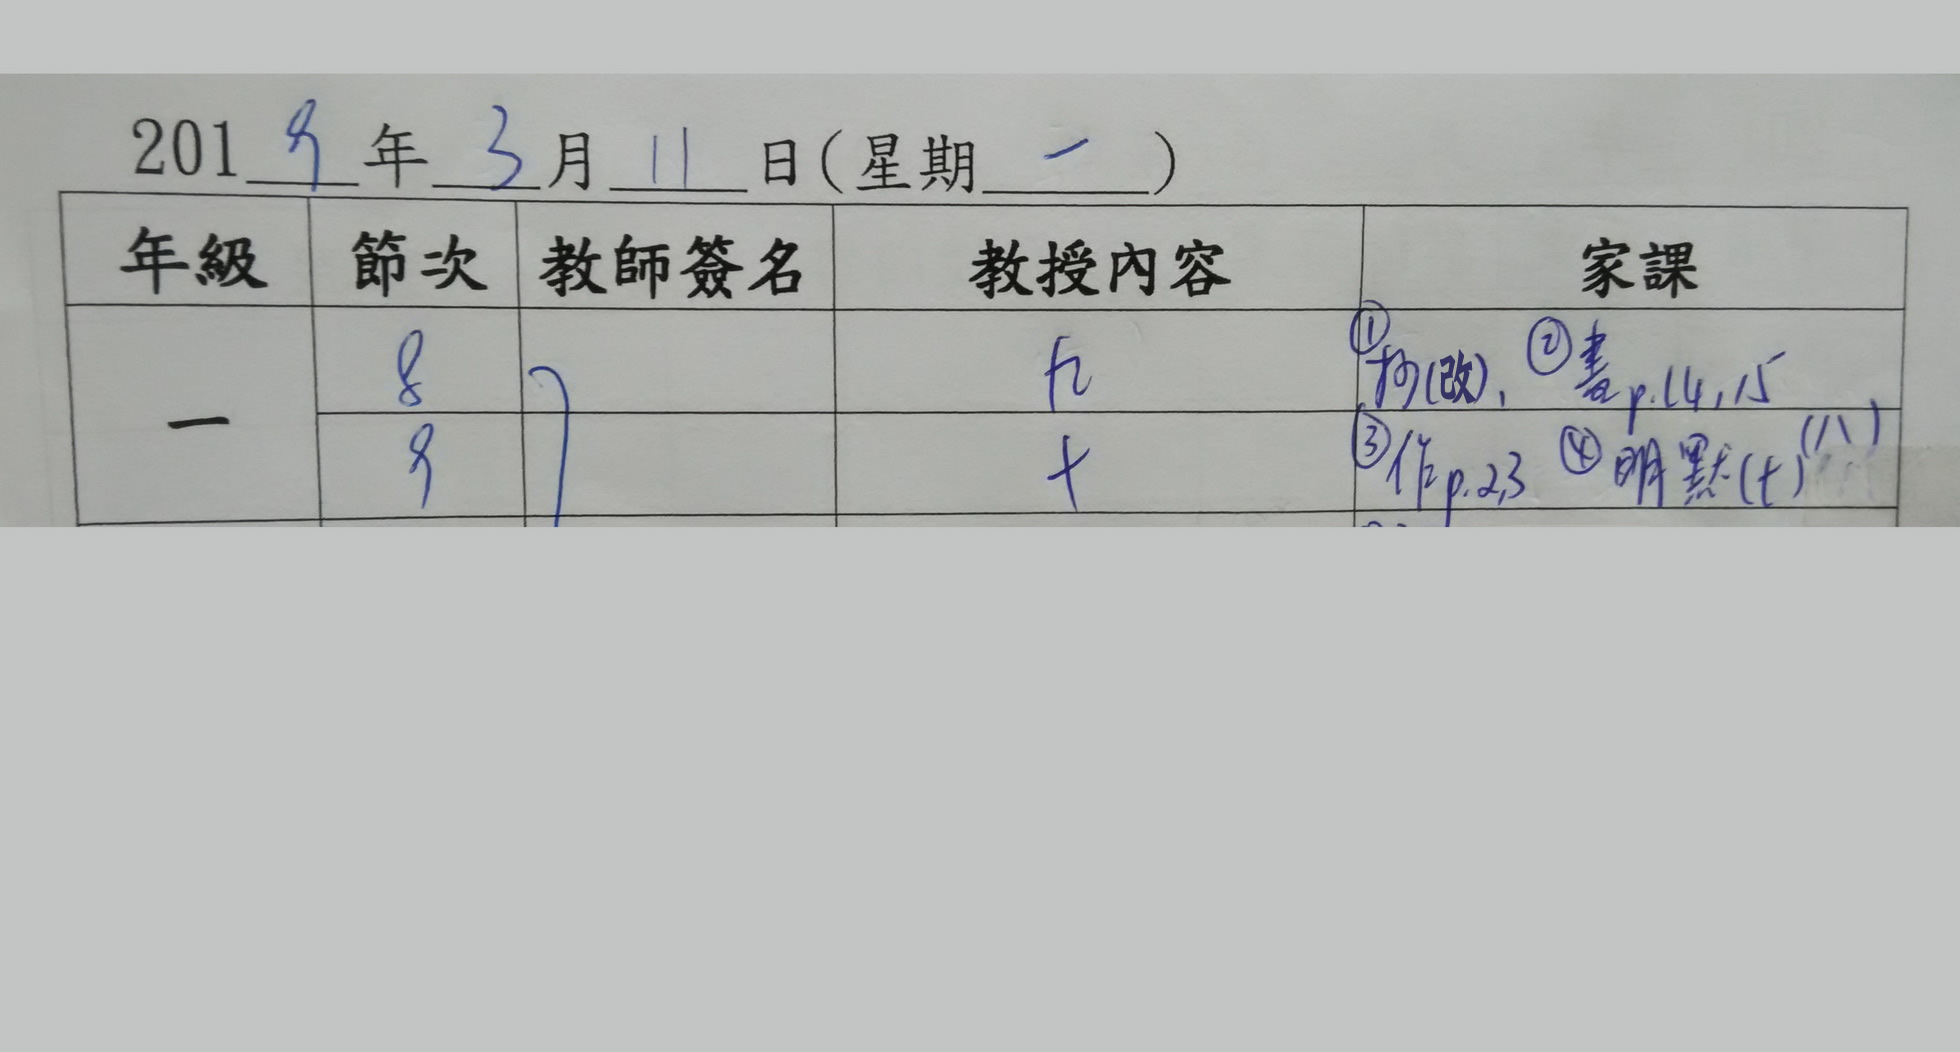 2019年3月11日(星期一)
年級 節次 教師簽名 教授內容 家課
一 8 九 ①抄(改), ②書p.14,15
9 十 ③作p.2,3 ④明默(十)(八)